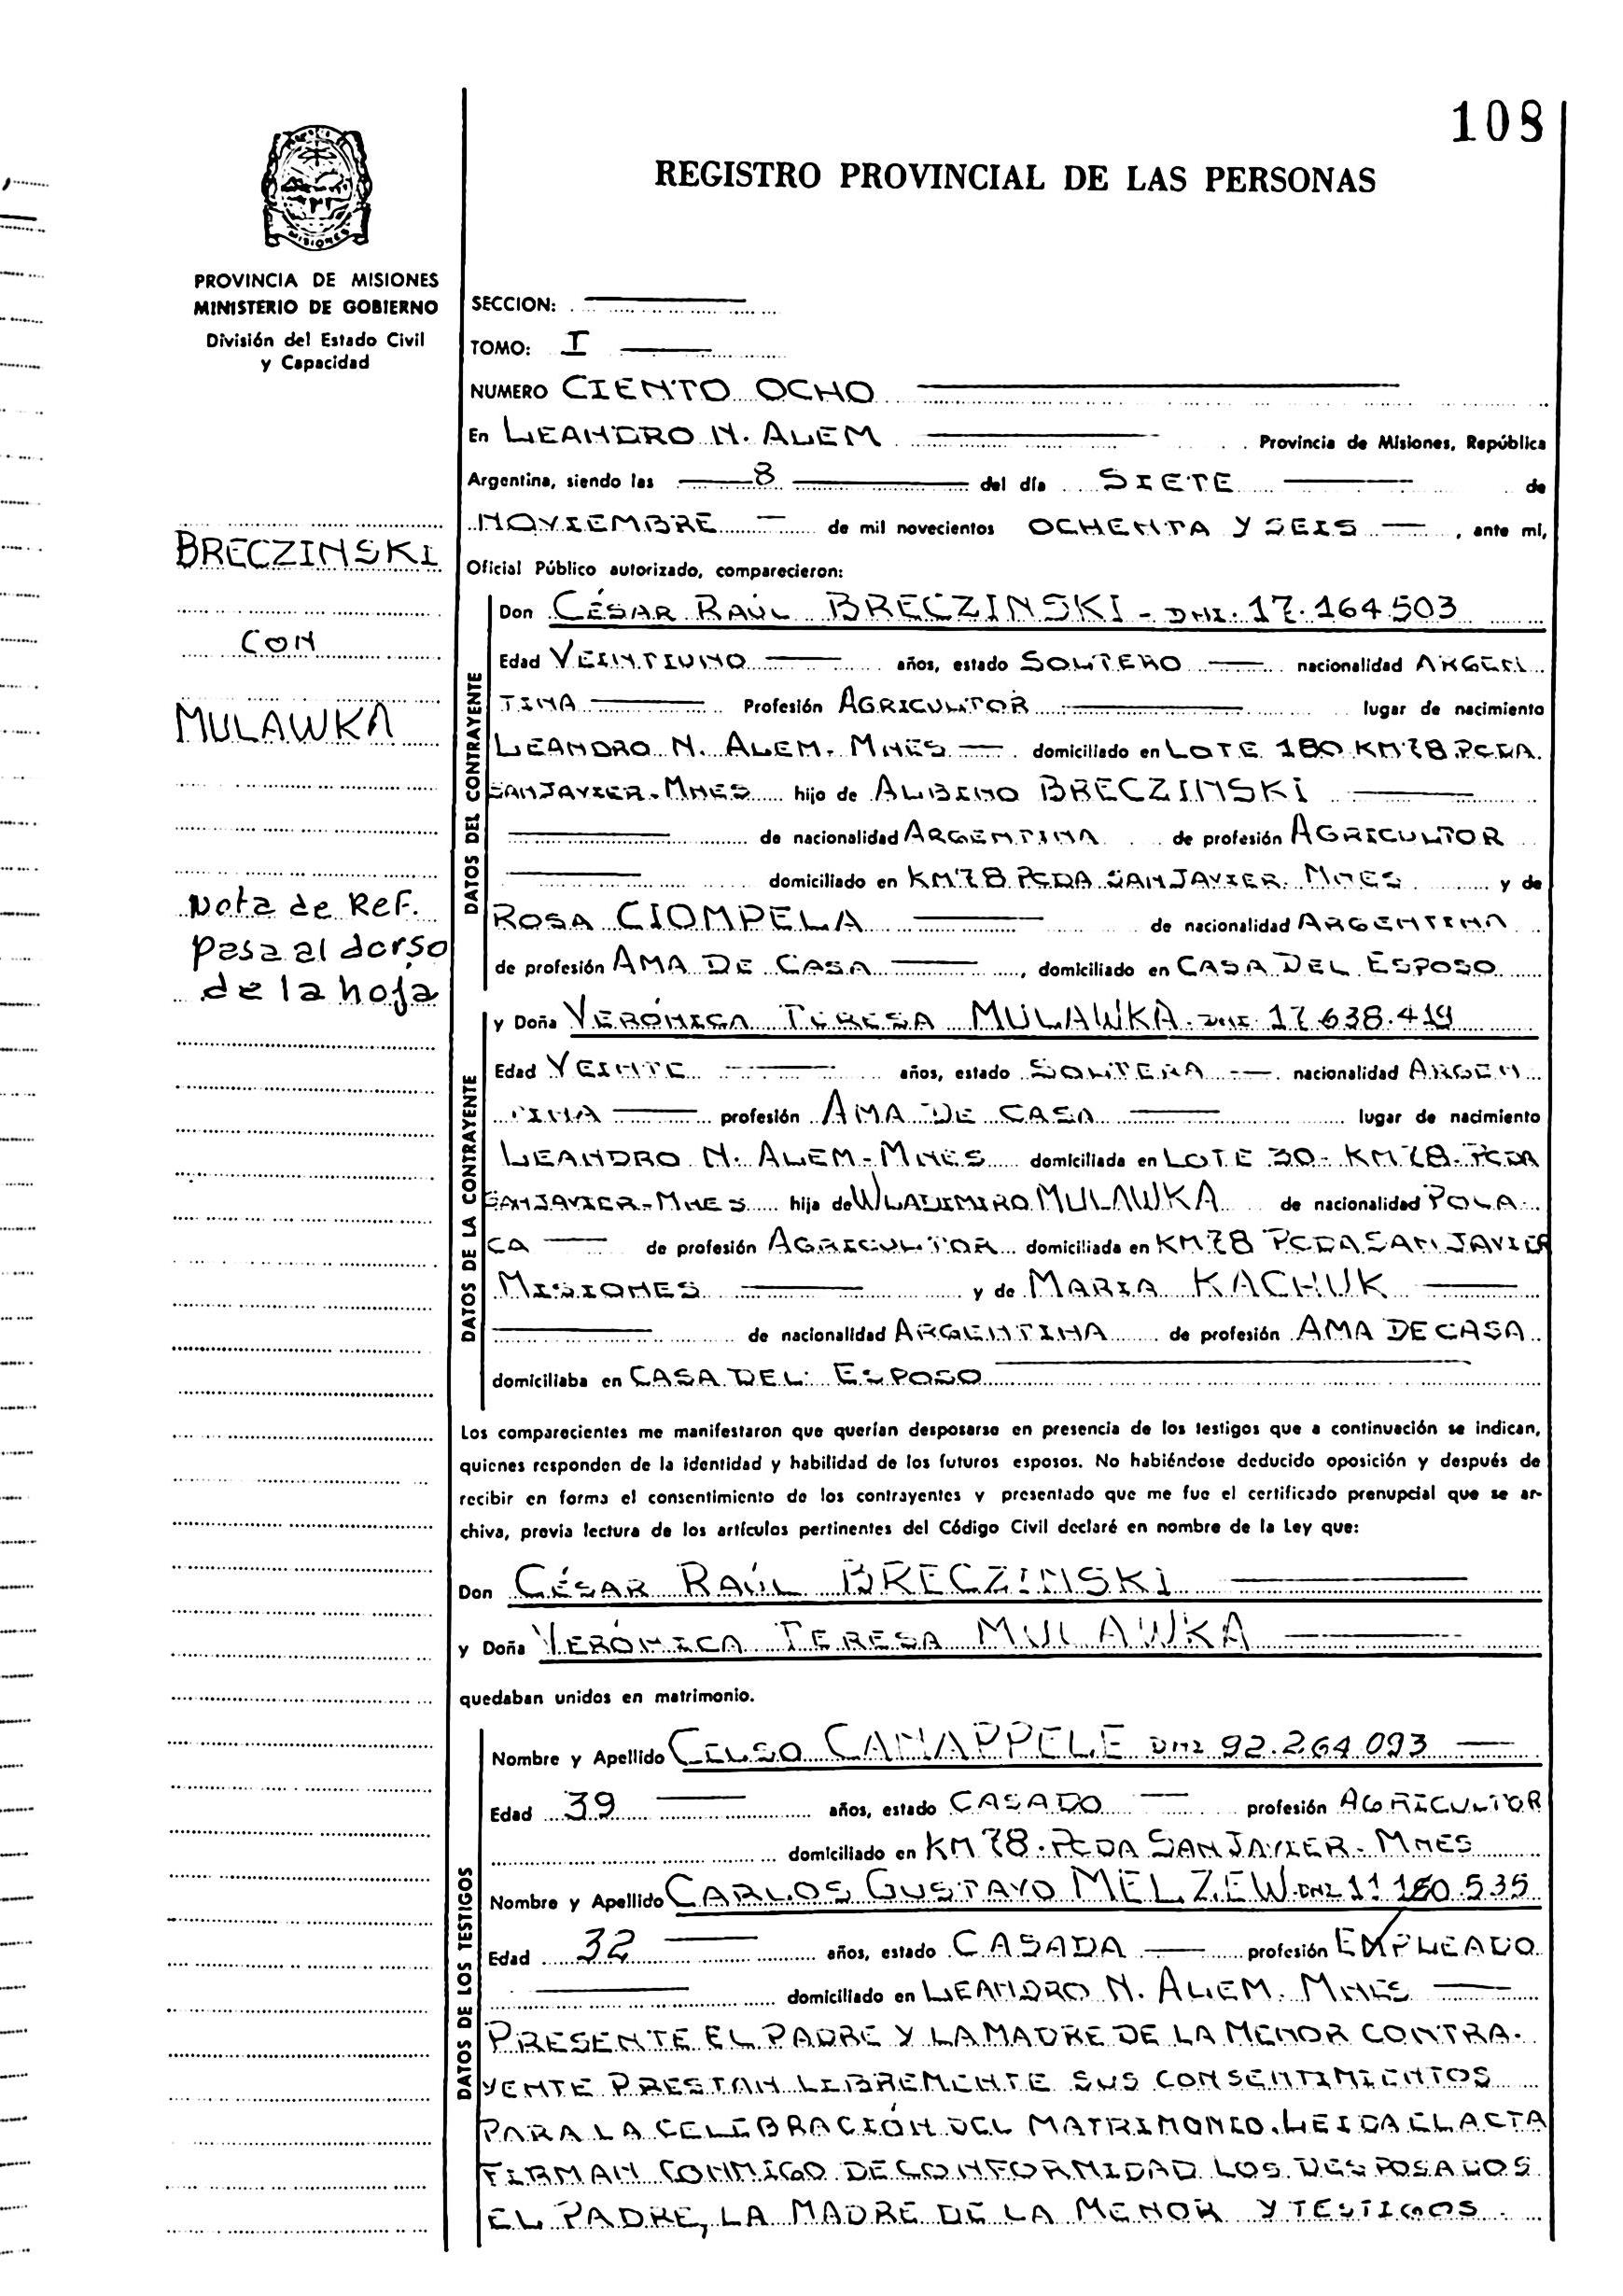 108
REGISTRO PROVINCIAL DE LAS PERSONAS
MISIONES
PROVINCIA DE MISIONES
MINISTERIO DE GOBIERNO
División del Estado Civil
y Capacidad
BRECZINSKI
CON
MULAWKA
Nota de Ref.
pasa al dorso
de la hoja
SECCION:
TOMO: I
NUMERO CIENTO OCHO
En LEANDRO N. ALEM Provincia de Misiones, República
Argentina, siendo las 8 del día SIETE de
NOVIEMBRE de mil novecientos OCHENTA Y SEIS, ante mí,
Oficial Público autorizado, comparecieron:
DATOS DEL CONTRAYENTE
Don CÉSAR RAÚL BRECZINSKI - DNI. 17.164.503
Edad VEINTIUNO años, estado SOLTERO nacionalidad ARGEN
TINA Profesión AGRICULTOR lugar de nacimiento
LEANDRO N. ALEM. MNES domiciliado en LOTE 180 KM 78 PCDA.
SAN JAVIER - MNES hijo de ALBINO BRECZINSKI
de nacionalidad ARGENTINA de profesión AGRICULTOR
domiciliado en KM 78 PCDA SAN JAVIER. MNES y de
ROSA CIOMPELA de nacionalidad ARGENTINA
de profesión AMA DE CASA, domiciliado en CASA DEL ESPOSO
DATOS DE LA CONTRAYENTE
y Doña VERÓNICA TERESA MULAWKA. DNI 17.638.419
Edad VEINTE años, estado SOLTERA nacionalidad ARGEN
TINA profesión AMA DE CASA lugar de nacimiento
LEANDRO N. ALEM - MNES domiciliada en LOTE 30 - KM 78 - PCDA
SAN JAVIER - MNES hija de WLADIMIRO MULAWKA de nacionalidad POLA
CA de profesión AGRICULTOR domiciliada en KM 78 PCDA SAN JAVIER
MISIONES y de MARIA KACHUK
de nacionalidad ARGENTINA de profesión AMA DE CASA
domiciliaba en CASA DEL ESPOSO
Los comparecientes me manifestaron que querían desposarse en presencia de los testigos que a continuación se indican,
quienes responden de la identidad y habilidad de los futuros esposos. No habiéndose deducido oposición y después de
recibir en forma el consentimiento de los contrayentes y presentado que me fue el certificado prenupcial que se ar-
chiva, previa lectura de los artículos pertinentes del Código Civil declaré en nombre de la Ley que:
Don CÉSAR RAÚL BRECZINSKI
y Doña VERÓNICA TERESA MULAWKA
quedaban unidos en matrimonio.
DATOS DE LOS TESTIGOS
Nombre y Apellido CELSO CANAPPELE DNI 92.264.093
Edad 39 años, estado CASADO profesión AGRICULTOR
domiciliado en KM 78. PCDA SAN JAVIER - MNES
Nombre y Apellido CARLOS GUSTAVO MELZEW. DNI 11.180.535
Edad 32 años, estado CASADA profesión EMPLEADO
domiciliado en LEANDRO N. ALEM. MNES
PRESENTE EL PADRE Y LA MADRE DE LA MENOR CONTRA-
YENTE PRESTAN LIBREMENTE SUS CONSENTIMIENTOS
PARA LA CELEBRACIÓN DEL MATRIMONIO. LEIDA EL ACTA
FIRMAN CONMIGO DE CONFORMIDAD LOS DESPOSADOS
EL PADRE, LA MADRE DE LA MENOR Y TESTIGOS.